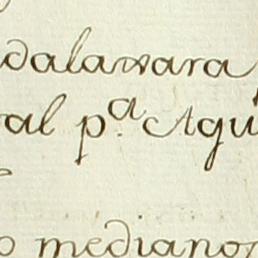 dalaxara
ral pª Agu
o medianos